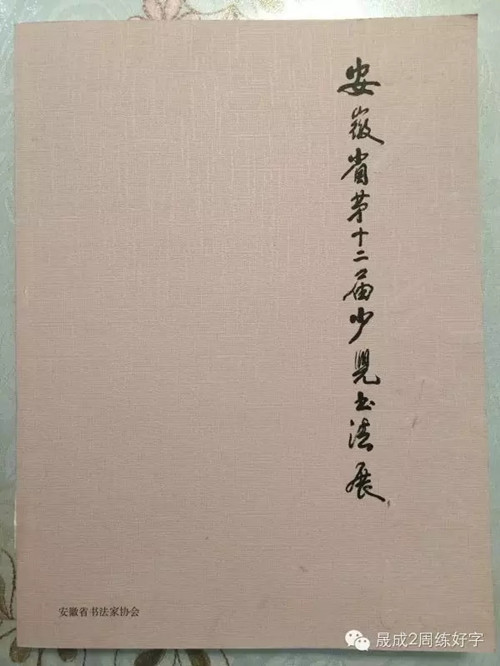 安徽省第十二届少児书法展
安徽省书法家协会
晟成2周练好字